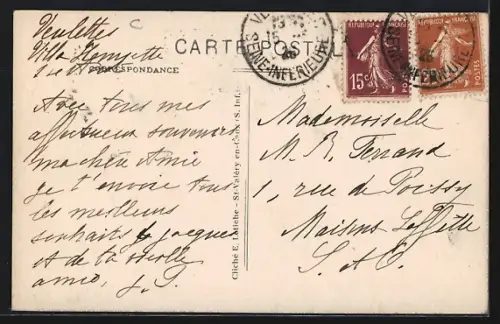 Veulettes
Villa Henryette
CARTE POSTALE
CORRESPONDANCE
Avec tous mes
affectueux souvenirs
ma chère Amie
je t'envoie tous
les meilleurs
souhaits de Jacques
et de ta vieille
amie, J.
Cliché E. Latiche - St-Valéry-en-Caux (S. Inf.)
SEINE-INFERIEURE
RÉPUBLIQUE FRANÇAISE
15c
POSTES
Mademoiselle
M. R. Ferrand
1, rue de Poissy
Maisons Laffitte
S. & O.